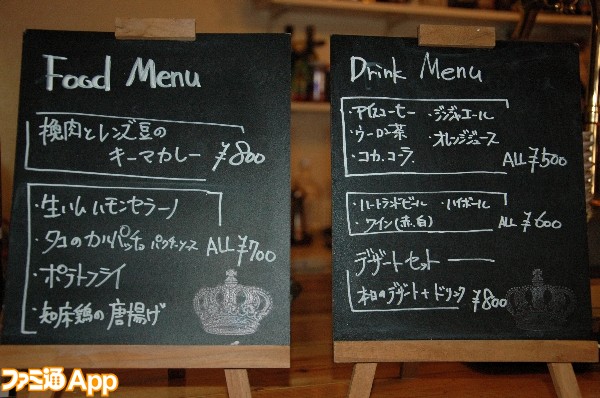 Food Menu
挽肉とレンズ豆の
キーマカレー ¥800
・生ハム ハモンセラーノ
・タコのカルパッチョ パクチーソース
・ポテトフライ
・知床鶏の唐揚げ
ALL ¥700
Drink Menu
・アイスコーヒー ・ジンジャエール
・ウーロン茶 ・オレンジジュース
・コカ.コーラ
ALL ¥500
・ハートランドビール ・ハイボール
・ワイン(赤.白)
ALL ¥600
デザートセット
・本日のデザート+ドリンク ¥800
ファミ通App